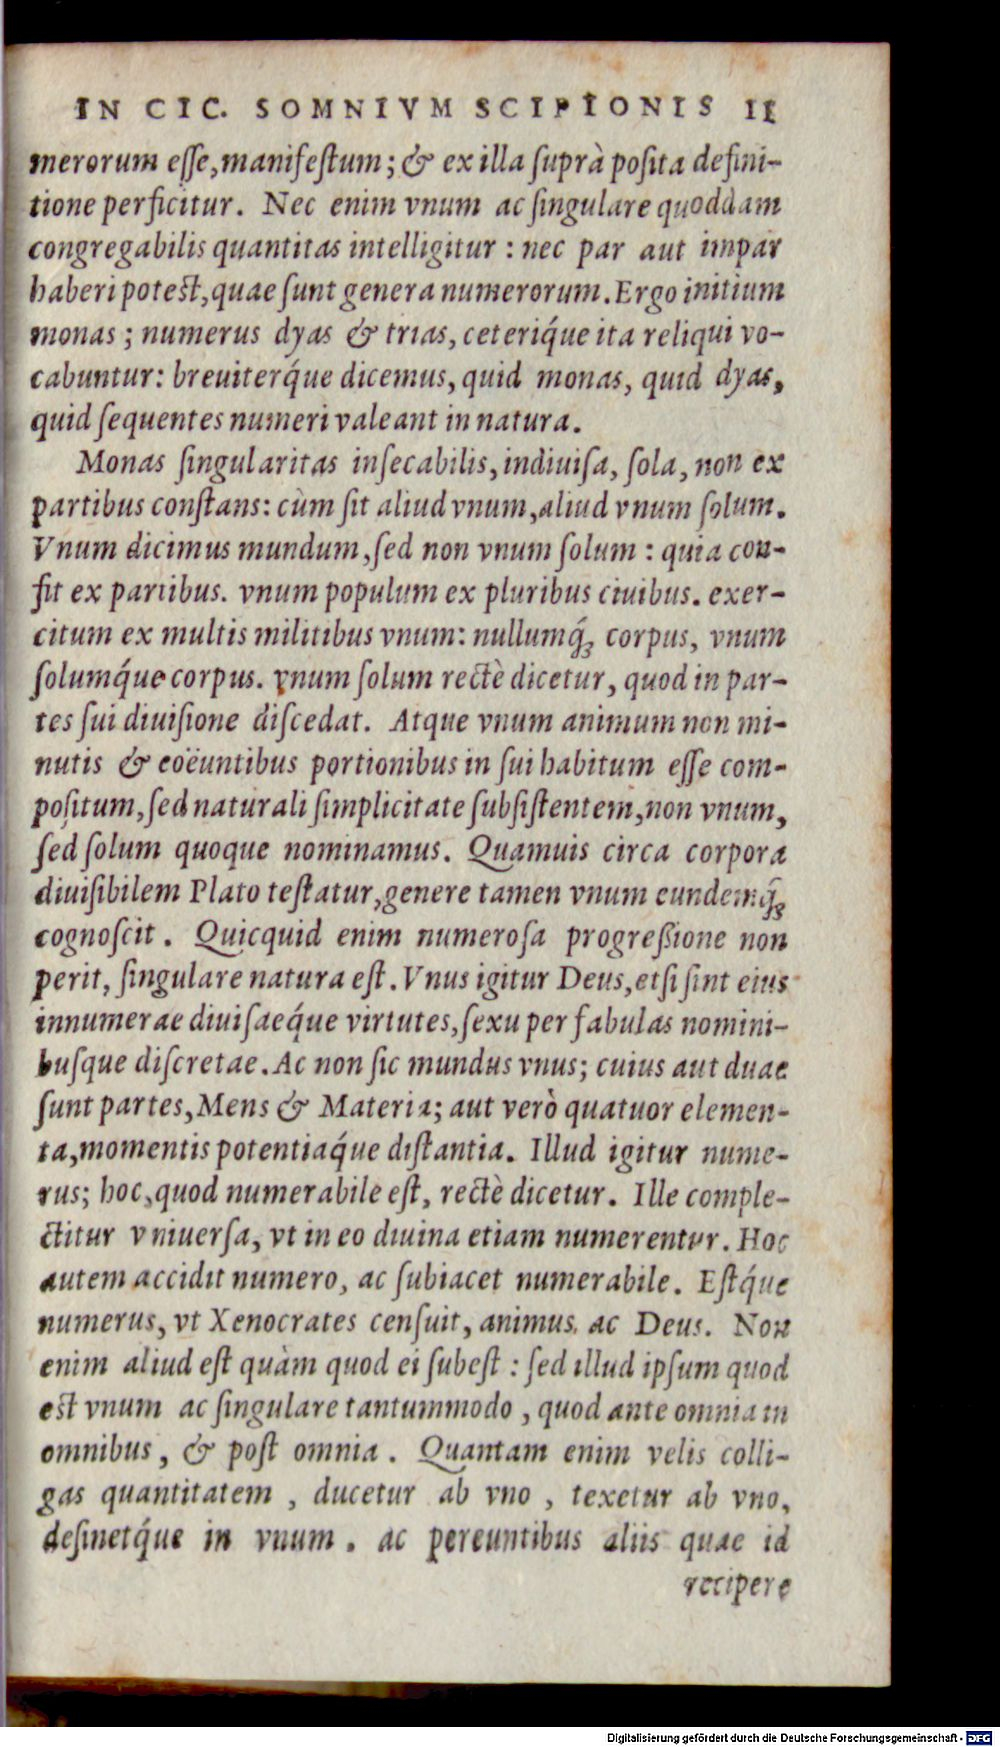 IN CIC. SOMNIVM SCIPIONIS 11
merorum eſſe, manifeſtum; & ex illa ſuprà poſita defini-
tione perficitur. Nec enim vnum ac ſingulare quoddam
congregabilis quantitas intelligitur : nec par aut impar
haberi poteſt, quae ſunt genera numerorum. Ergo initium
monas ; numerus dyas & trias, ceteriq́ue ita reliqui vo-
cabuntur: breuiterq́ue dicemus, quid monas, quid dyas,
quid ſequentes numeri valeant in natura.
Monas ſingularitas inſecabilis, indiuiſa, ſola, non ex
partibus conſtans: cùm ſit aliud vnum, aliud vnum ſolum.
Vnum dicimus mundum, ſed non vnum ſolum : quia con-
ſit ex partibus. vnum populum ex pluribus ciuibus. exer-
citum ex multis militibus vnum: nullumq́ꝫ corpus, vnum
ſolumq́ue corpus. vnum ſolum rectè dicetur, quod in par-
tes ſui diuiſione diſcedat. Atque vnum animum non mi-
nutis & coëuntibus portionibus in ſui habitum eſſe com-
poſitum, ſed naturali ſimplicitate ſubſiſtentem, non vnum,
ſed ſolum quoque nominamus. Quamuis circa corpora
diuiſibilem Plato teſtatur, genere tamen vnum eundemq́ꝫ
cognoſcit. Quicquid enim numeroſa progreßione non
perit, ſingulare natura eſt. Vnus igitur Deus, etſi ſint eius
innumerae diuiſaeq́ue virtutes, ſexu per fabulas nomini-
buſque diſcretae. Ac non ſic mundus vnus; cuius aut duae
ſunt partes, Mens & Materia; aut verò quatuor elemen-
ta, momentis potentiaq́ue diſtantia. Illud igitur nume-
rus; hoc, quod numerabile eſt, rectè dicetur. Ille comple-
ctitur vniuerſa, vt in eo diuina etiam numerentur. Hoc
autem accidit numero, ac ſubiacet numerabile. Eſtq́ue
numerus, vt Xenocrates cenſuit, animus, ac Deus. Non
enim aliud eſt quàm quod ei ſubeſt : ſed illud ipſum quod
eſt vnum ac ſingulare tantummodo, quod ante omnia in
omnibus, & poſt omnia. Quantam enim velis colli-
gas quantitatem, ducetur ab vno, texetur ab vno,
deſinetq́ue in vnum. ac pereuntibus aliis quae id
recipere
Digitalisierung gefördert durch die Deutsche Forschungsgemeinschaft - DFG